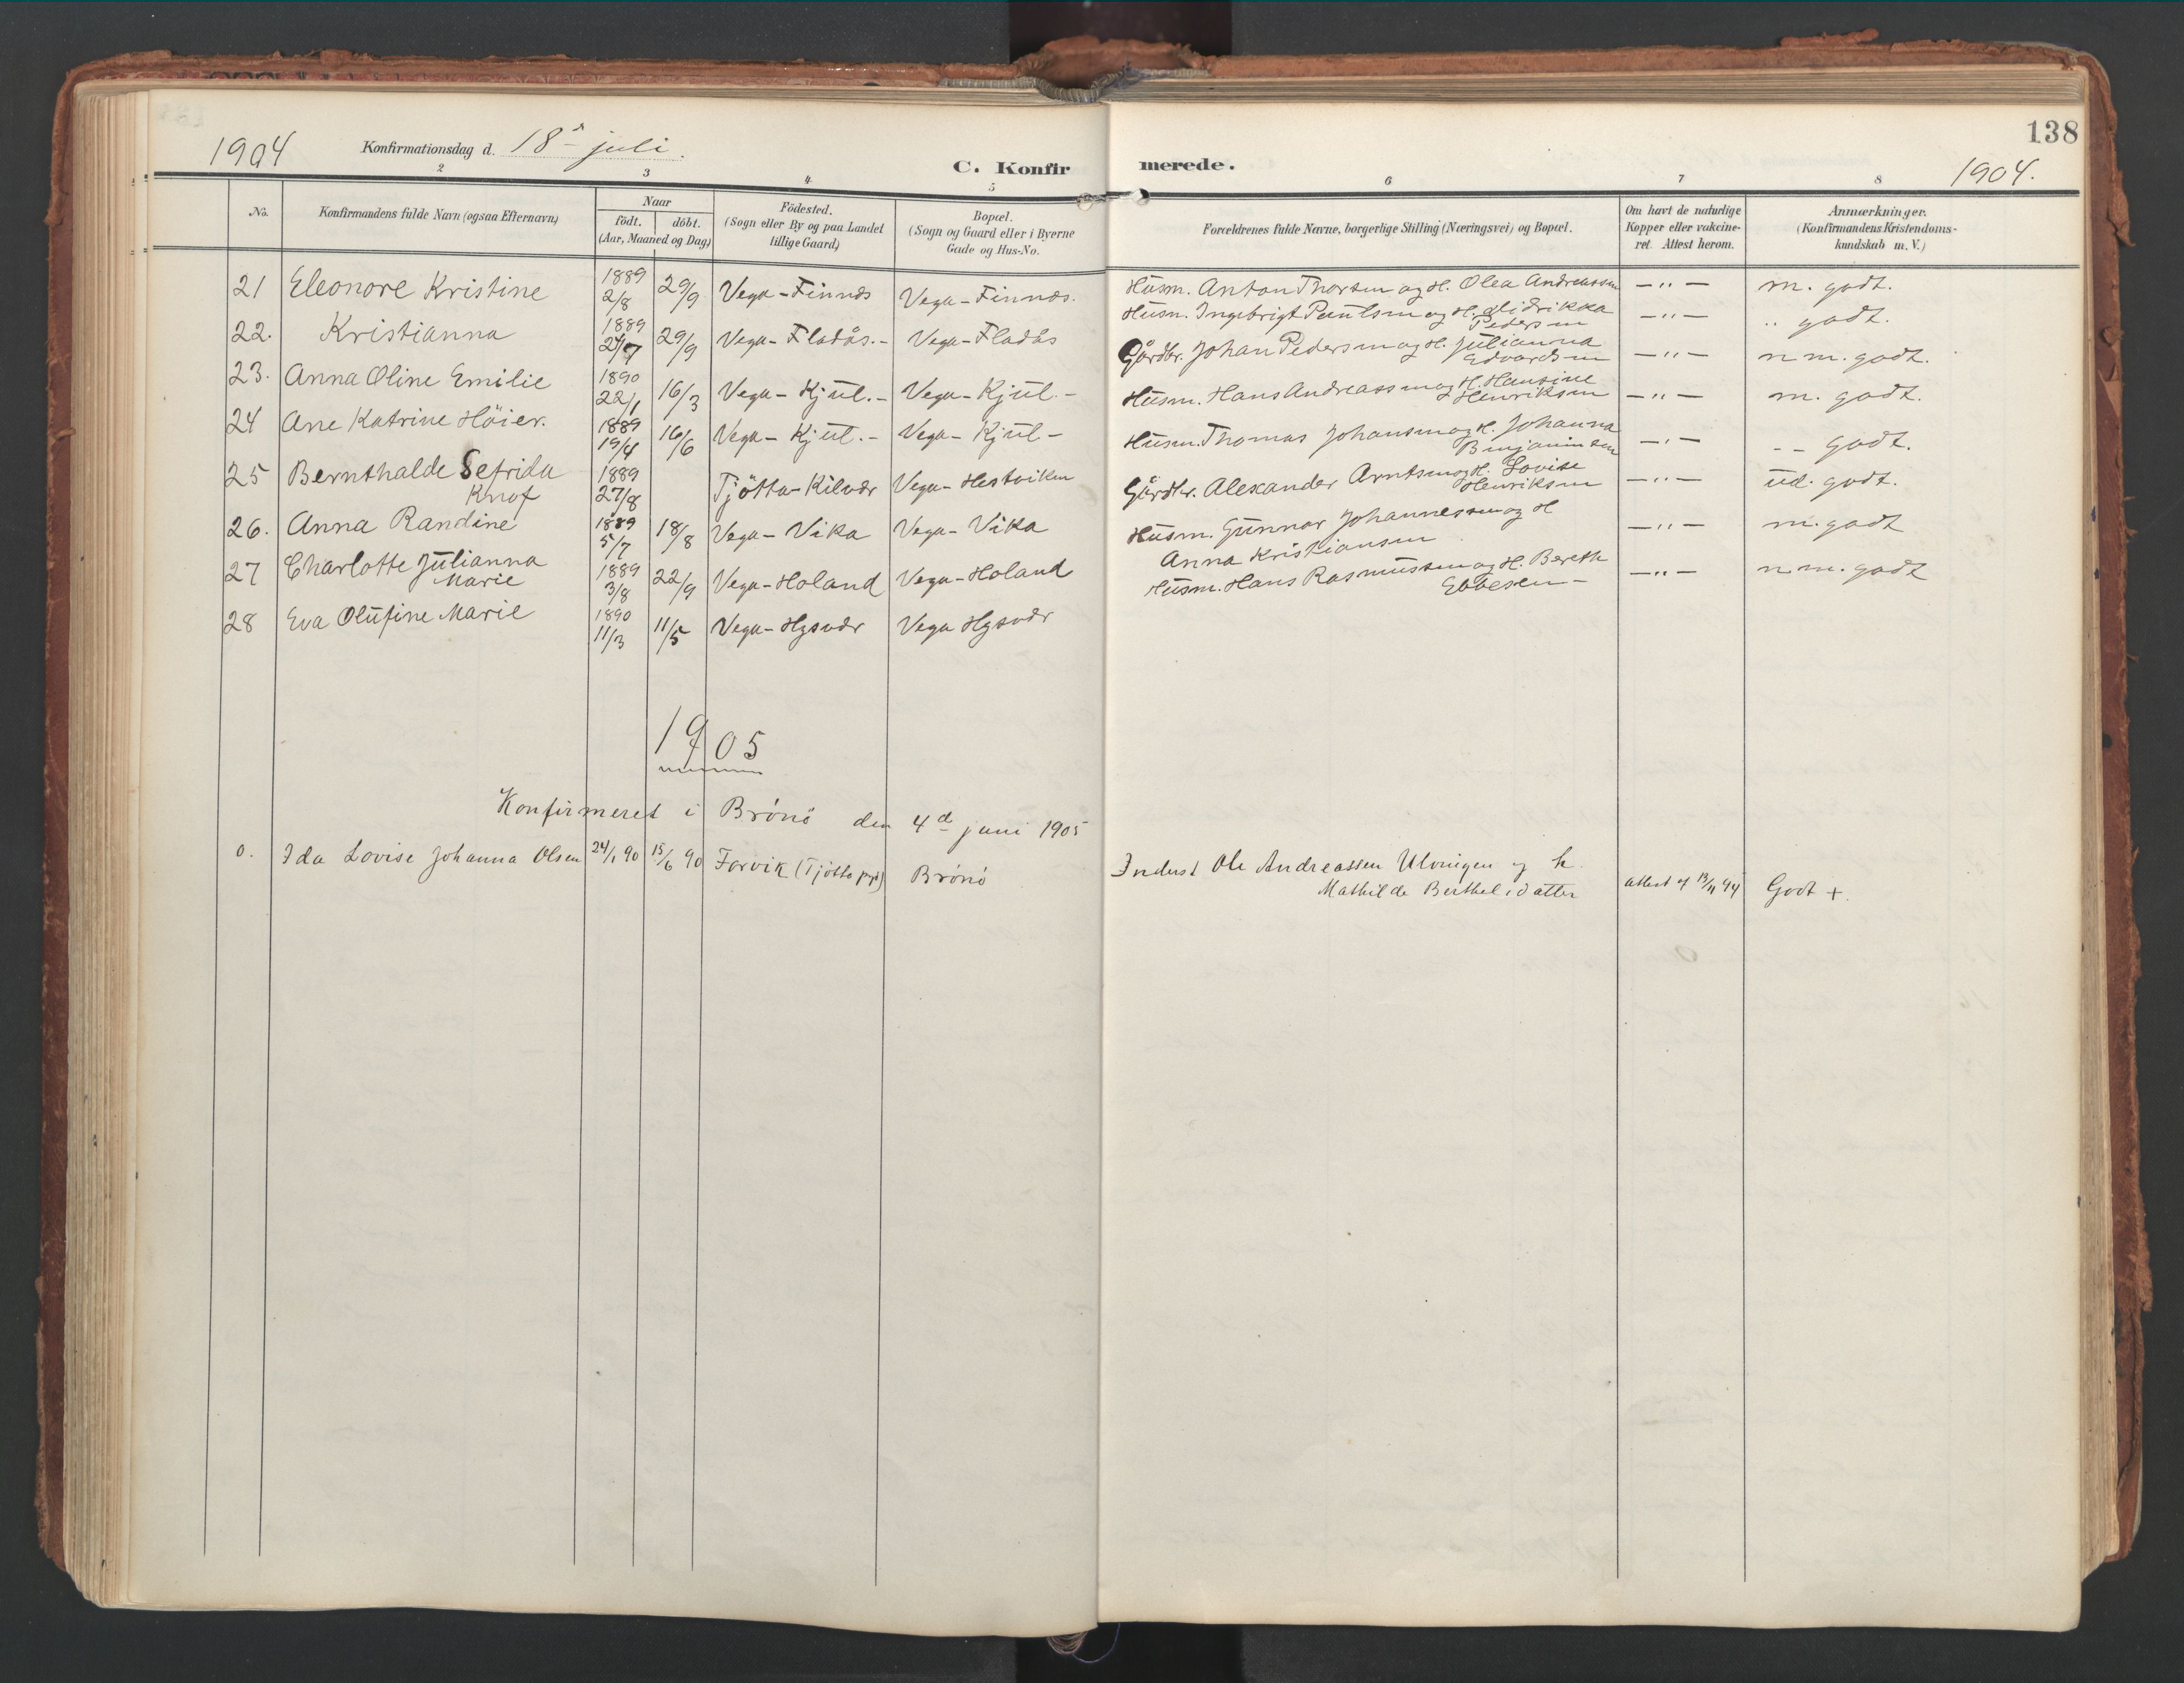 1904 Konfirmationsdag d. 18de juli.
C. Konfirmerede.
138
1904.
2 3 4 5 6 7 8
No.
Konfirmandens fulde Navn (ogsaa Efternavn)
Naar
født. døbt.
(Aar, Maaned og Dag)
Födested.
(Sogn eller By og paa Landet
tillige Gaard)
Bopæl.
(Sogn og Gaard eller i Byerne
Gade og Hus-No.
Forældrenes fulde Navne, borgerlige Stilling (Næringsvei) og Bopæl.
Om havt de naturlige
Kopper eller vakcine-
ret. Attest herom.
Anmærkninger.
(Konfirmandens Kristendoms-
kundskab m. V.)
21 Eleonore Kristine 1889 2/8 29/9 Vega-Finnæs Vega-Finnæs. Husm. Anton Thorsen og H. Olea Andreassen —"— m. godt.
22. Kristianna 1889 29/9 Vega-Fladås.- Vega-Fladås Husm. Ingebrigt Paulsen og H. Didrikka
Pedersen —"— " godt.
23. Anna Oline Emilie 1890 22/1 16/3 Vega-Kjul.- Vega-Kjul.- Gårdbr. Johan Pedersen og H. Julianna
Edvardsen —"— n m. godt.
24 Ane Katrine Höier. 1889 19/4 16/6 Vega-Kjul.- Vega-Kjul- Husm. Hans Andreassen og H. Hansine
Henriksen —"— m. godt.
25 Bernthalde Sefrida
Knof 1889 27/8 Tjötta-Kilvær Vega-Hestviken Husm. Thomas Johansen og H. Johanna
Benjaminsen —"— -- godt.
26. Anna Randine 1889 5/7 18/8 Vega-Vika Vega-Vika Gårdbr. Alexander Arntsen og H. Lovise
Henriksen —"— üd. godt.
27 Charlotte Julianna
Marie 1889 3/8 22/9 Vega-Holand Vega-Holand Husm. Gunnar Johannessen og H
Anna Kristiansen —"— m. godt
28 Eva Olufine Marie 1890 11/3 11/5 Vega-Hysvær Vega Hysvær Husm. Hans Rasmussen og H. Bereth
Ebbesen- —"— n m. godt
1905
Konfirmeret i Brönö den 4de juni 1905
0. Ida Lovise Johanna Olsen 24/1 90 15/6 90 Forvik (Tjötta pgd) Brönö Inderst Ole Andreassen Ulvingen og h.
Mathilde Berthelsdatter attest af 13/11 94 Godt +.